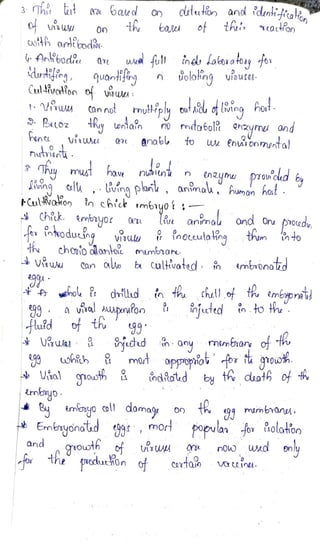 3. This test are based on detection and identification
of viruses on the bases of their reaction
with antibodies.
4. Antibodies are used full ined Laboratory for
identifying, quantifying n isolating viruses.
Cultivation of viruses:
1. Viruses cannot multiply outside of living host.
2. Becoz they contain no metabolic enzyme and
hence viruses are anable to use environmental
nutrients.
3. They must have nutrients n enzyme provided by
living cells, living plants, animals, human host.
Cultivation in chick embryos:-
* Chick embryos are live animal and one procedu
for introducing viruses is inocculating them into
the chorio allantoic membrane.
* Viruses can also be cultivated in embronated
eggs.
* A whole is drilled in the shell of the embryonated
egg. a viral suspension is injected in to the
fluid of the egg.
* Viruses is injected in any membrane of the
egg which is most appropriate for its growth.
* Viral growth is indicated by the death of the
embryo.
* By embryo cell damage on the egg membranes.
* Embryonated eggs, most popular for isolation
and growth of viruses are now used only
for the production of certain vaccines.